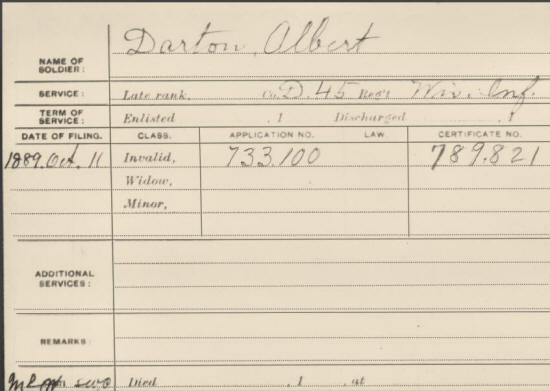 NAME OF SOLDIER: Darton, Albert
SERVICE: Late rank, Co. D. 45 Reg't Wis. Inf.
TERM OF SERVICE: Enlisted , 1 Discharged , 1
DATE OF FILING. CLASS. APPLICATION NO. LAW. CERTIFICATE NO.
1889. Oct. 11 Invalid, 733.100 789.821
Widow,
Minor,
ADDITIONAL SERVICES:
REMARKS:
Died , 1 , at